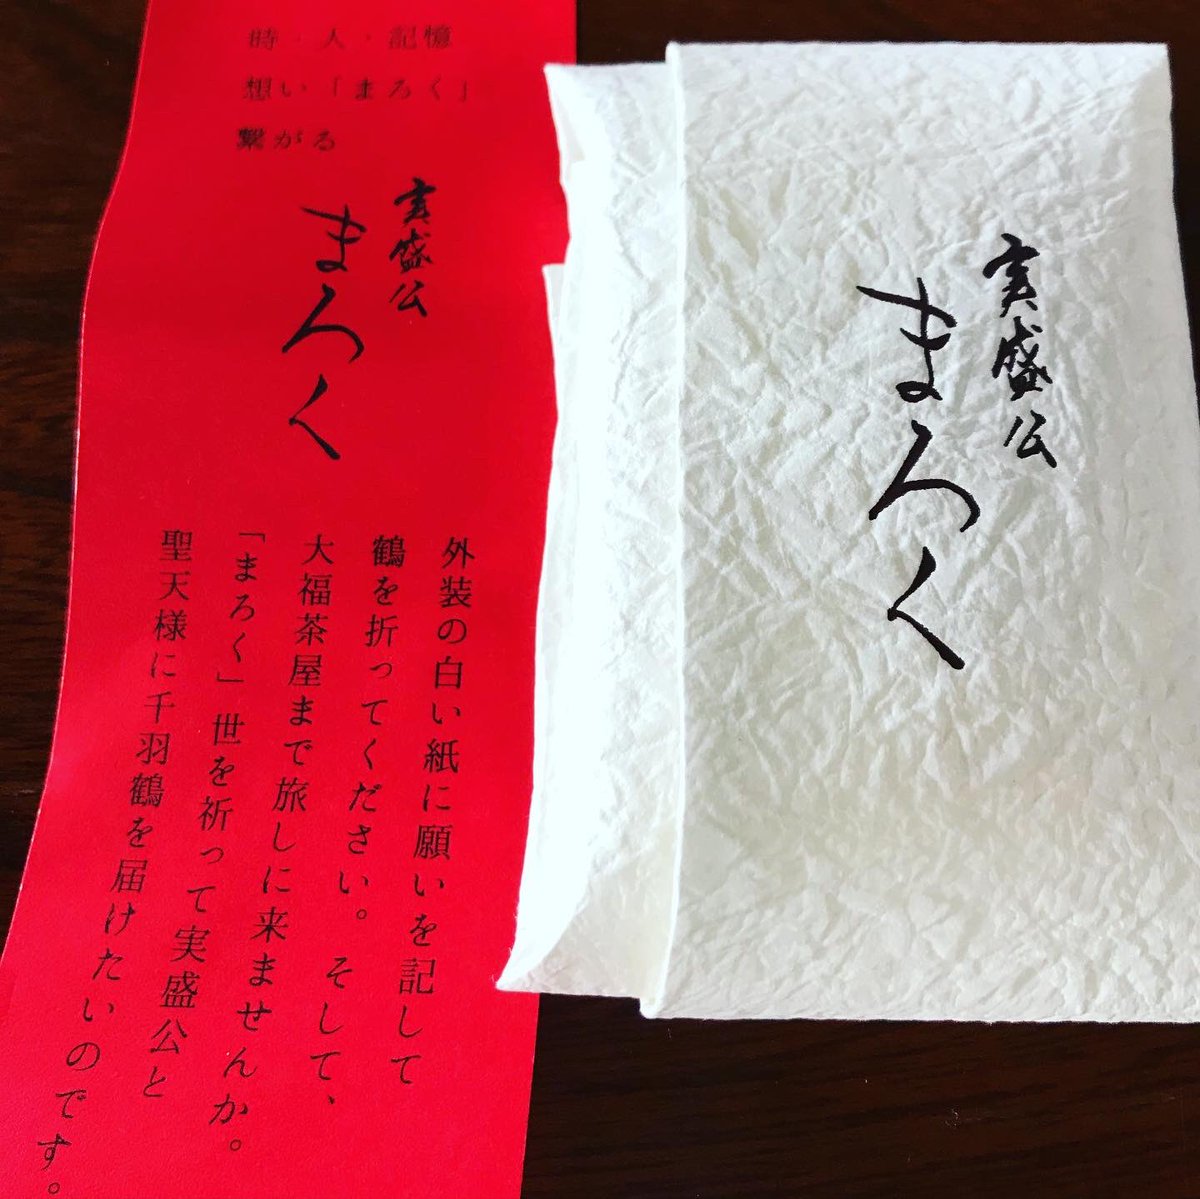 時・人・記憶
想い「まろく」
繋がる
実盛公
まろく
外装の白い紙に願いを記して
鶴を折ってください。そして、
大福茶屋まで旅しに来ませんか。
「まろく」世を祈って実盛公と
聖天様に千羽鶴を届けたいのです。
実盛公
まろく